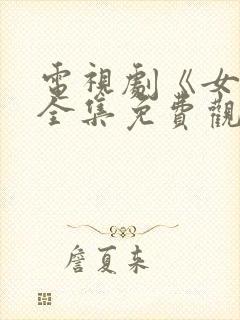 電視劇《女
全集免費觀
詹夏来